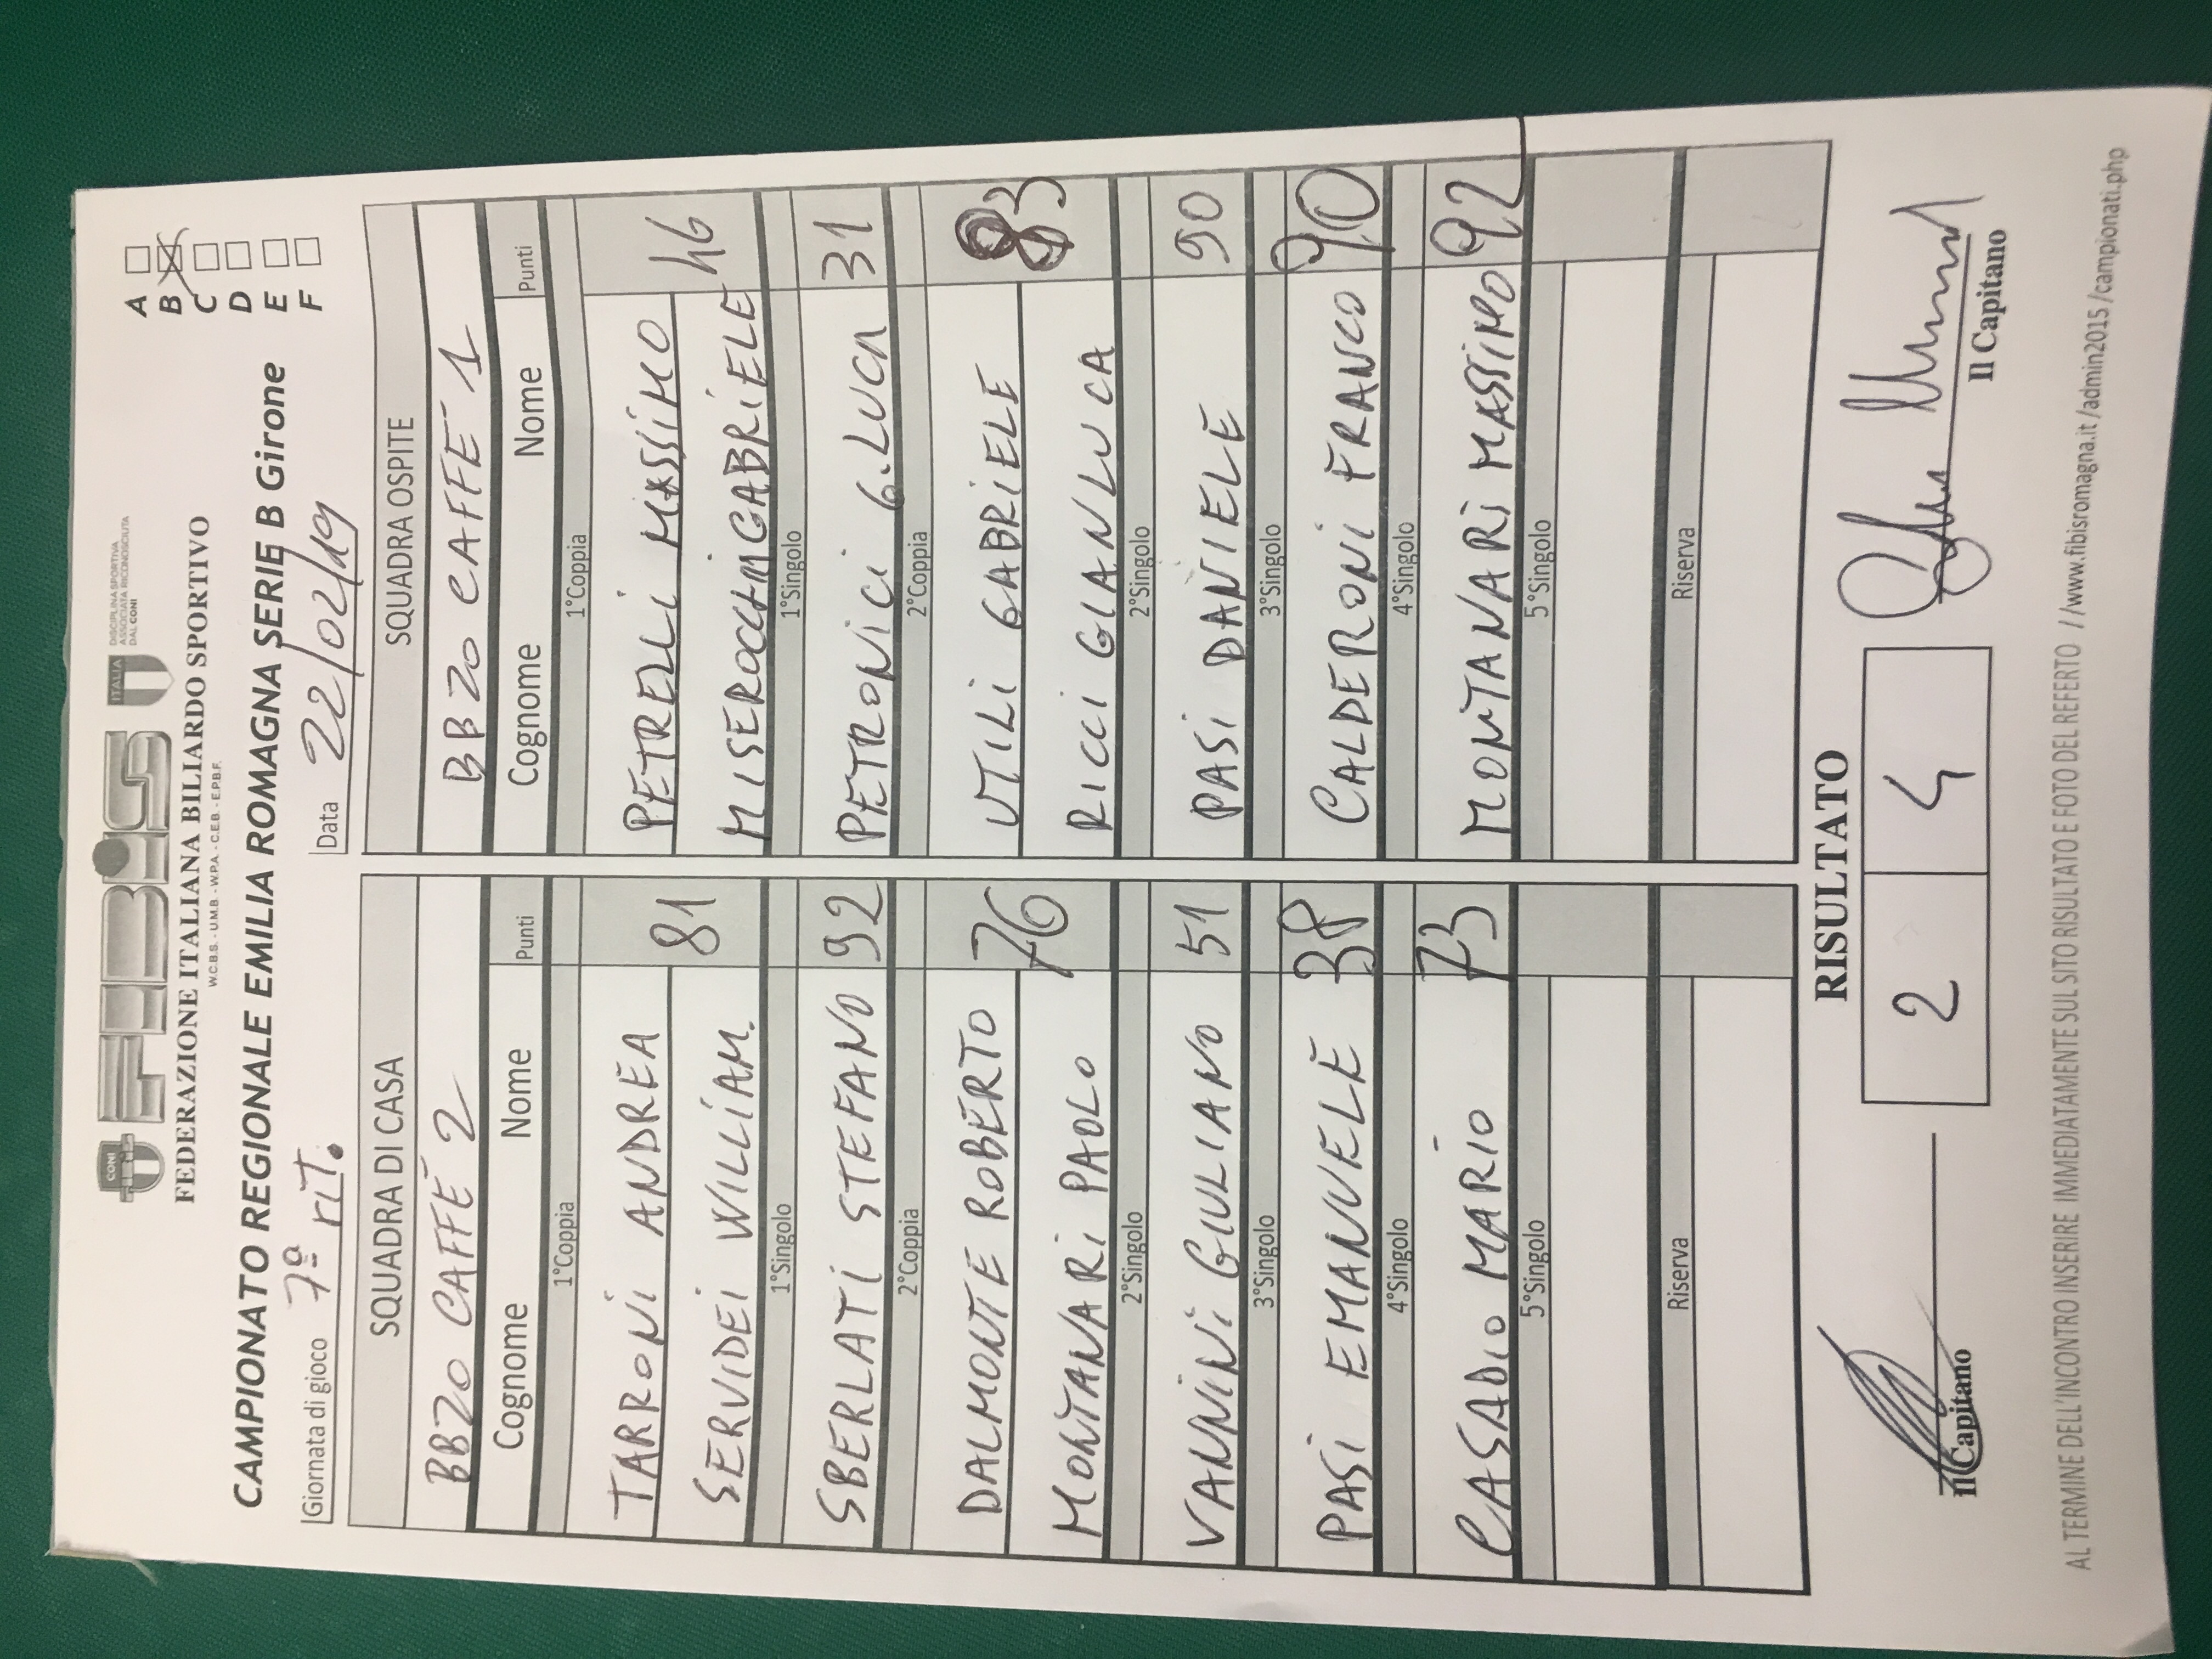 CONI
FIBiS
ITALIA
DISCIPLINA SPORTIVA
ASSOCIATA RICONOSCIUTA
DAL CONI
FEDERAZIONE ITALIANA BILIARDO SPORTIVO
W.C.B.S. - U.M.B. - W.P.A. - C.E.B. - E.P.B.F.
CAMPIONATO REGIONALE EMILIA ROMAGNA SERIE B Girone
A
B
C
D
E
F
Giornata di gioco 7ª rit.
Data 22/02/19
SQUADRA DI CASA SQUADRA OSPITE
BBZO CAFFE 2 BBZO CAFFE 1
Cognome Nome Punti Cognome Nome Punti
1°Coppia 1°Coppia
TARRONI ANDREA PETRELLI MASSIMO
SERVIDEI WILLIAM. 81 MISEROCCHI GABRIELE 46
1°Singolo 1°Singolo
SBERLATI STEFANO 92 PETRONICI G.LUCA 31
2°Coppia 2°Coppia
DALMONTE ROBERTO UTILI GABRIELE
MONTANARI PAOLO 76 RICCI GIANLUCA 83
2°Singolo 2°Singolo
VANNINI GIULIANO 51 PASI DANIELE 90
3°Singolo 3°Singolo
PASI EMANUELE 38 CALDERONI FRANCO 90
4°Singolo 4°Singolo
CASADIO MARIO 73 MONTANARI MASSIMO 92
5°Singolo 5°Singolo
Riserva Riserva
RISULTATO
2 4
Il Capitano Il Capitano
AL TERMINE DELL'INCONTRO INSERIRE IMMEDIATAMENTE SUL SITO RISULTATO E FOTO DEL REFERTO //www.fibisromagna.it /admin2015 /campionati.php